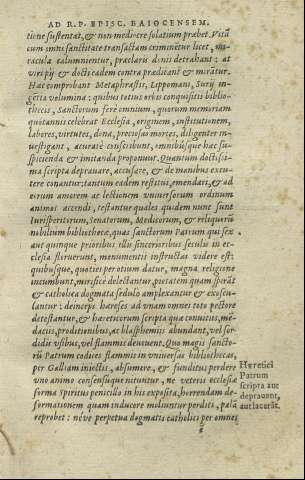 AD R.P. EPISC. BAIOCENSEM.
tione sustentat, & non mediocre solatium præbet. Vitã
cum omni sanctitate transactam criminëtur licet, mi-
racula calumnientur, præclara omni detrahant: at
viri pij & docti eadem contra prædicant & mirãtur.
Hæc comprobant Metaphrastis, Lippomani, Surij in-
gẽtia volumina: quibus totius orbis conquisitis biblio-
thecis, Sanctorum ferè omnium, quorum memoriam
quotannis celebrat Ecclesia, originem, institutionem,
labores, virtutes, dona, preciosas mortes, diligenter in-
uestigant, accuratè conscribunt, omnibúsque hæc su-
spicienda & imitanda proponunt. Quantum doctissi-
ma scripta deprauare, accusare, & de manibus excu-
tere conantur: tantum eadem restitui, emendari, & ad
eorum amorem ac lectionem vniuersorum ordinum
animos accendi, testantur quotles quidem nunc sunt
Iurisperitorum, Senatorum, Medicorum, & reliquorũ
nobilium bibliothecæ, quas sanctorum Patrum qui sex
aut quinque prioribus illis sincerioribus seculis in ec-
clesia floruerunt, monumentis instructas videre est:
quibusque, quoties per otium datur, magna religione
incumbunt, mirificè delectantur, pietatem quam spirãt
& catholica dogmata sedulò amplexantur & exoscu-
lantur: denique hæreses ab vnam omnes toto pectore
detestantur, & hæreticorum scripta quæ conuitiis, mẽ-
daciis, proditionibus, ac blasphemiis abundant, vel sor-
didis vsibus, vel flammis deuouent. Quo magis sancto-
rũ Patrum codices flammis in vniuersas bibliothecas,
per Galliam iniectis, absumere, & funditus perdere
vno animo consensúque nituntur, ne veteris ecclesiæ
forma Spiritus penicillo in his exposita, horrendam de-
formationem quam inducere moliuntur perditi, palã
reprobet: néve perpetua dogmatis catholici per omnes
Hæretici
Patrum
scripta aut
deprauant,
aut lacerãt.
g